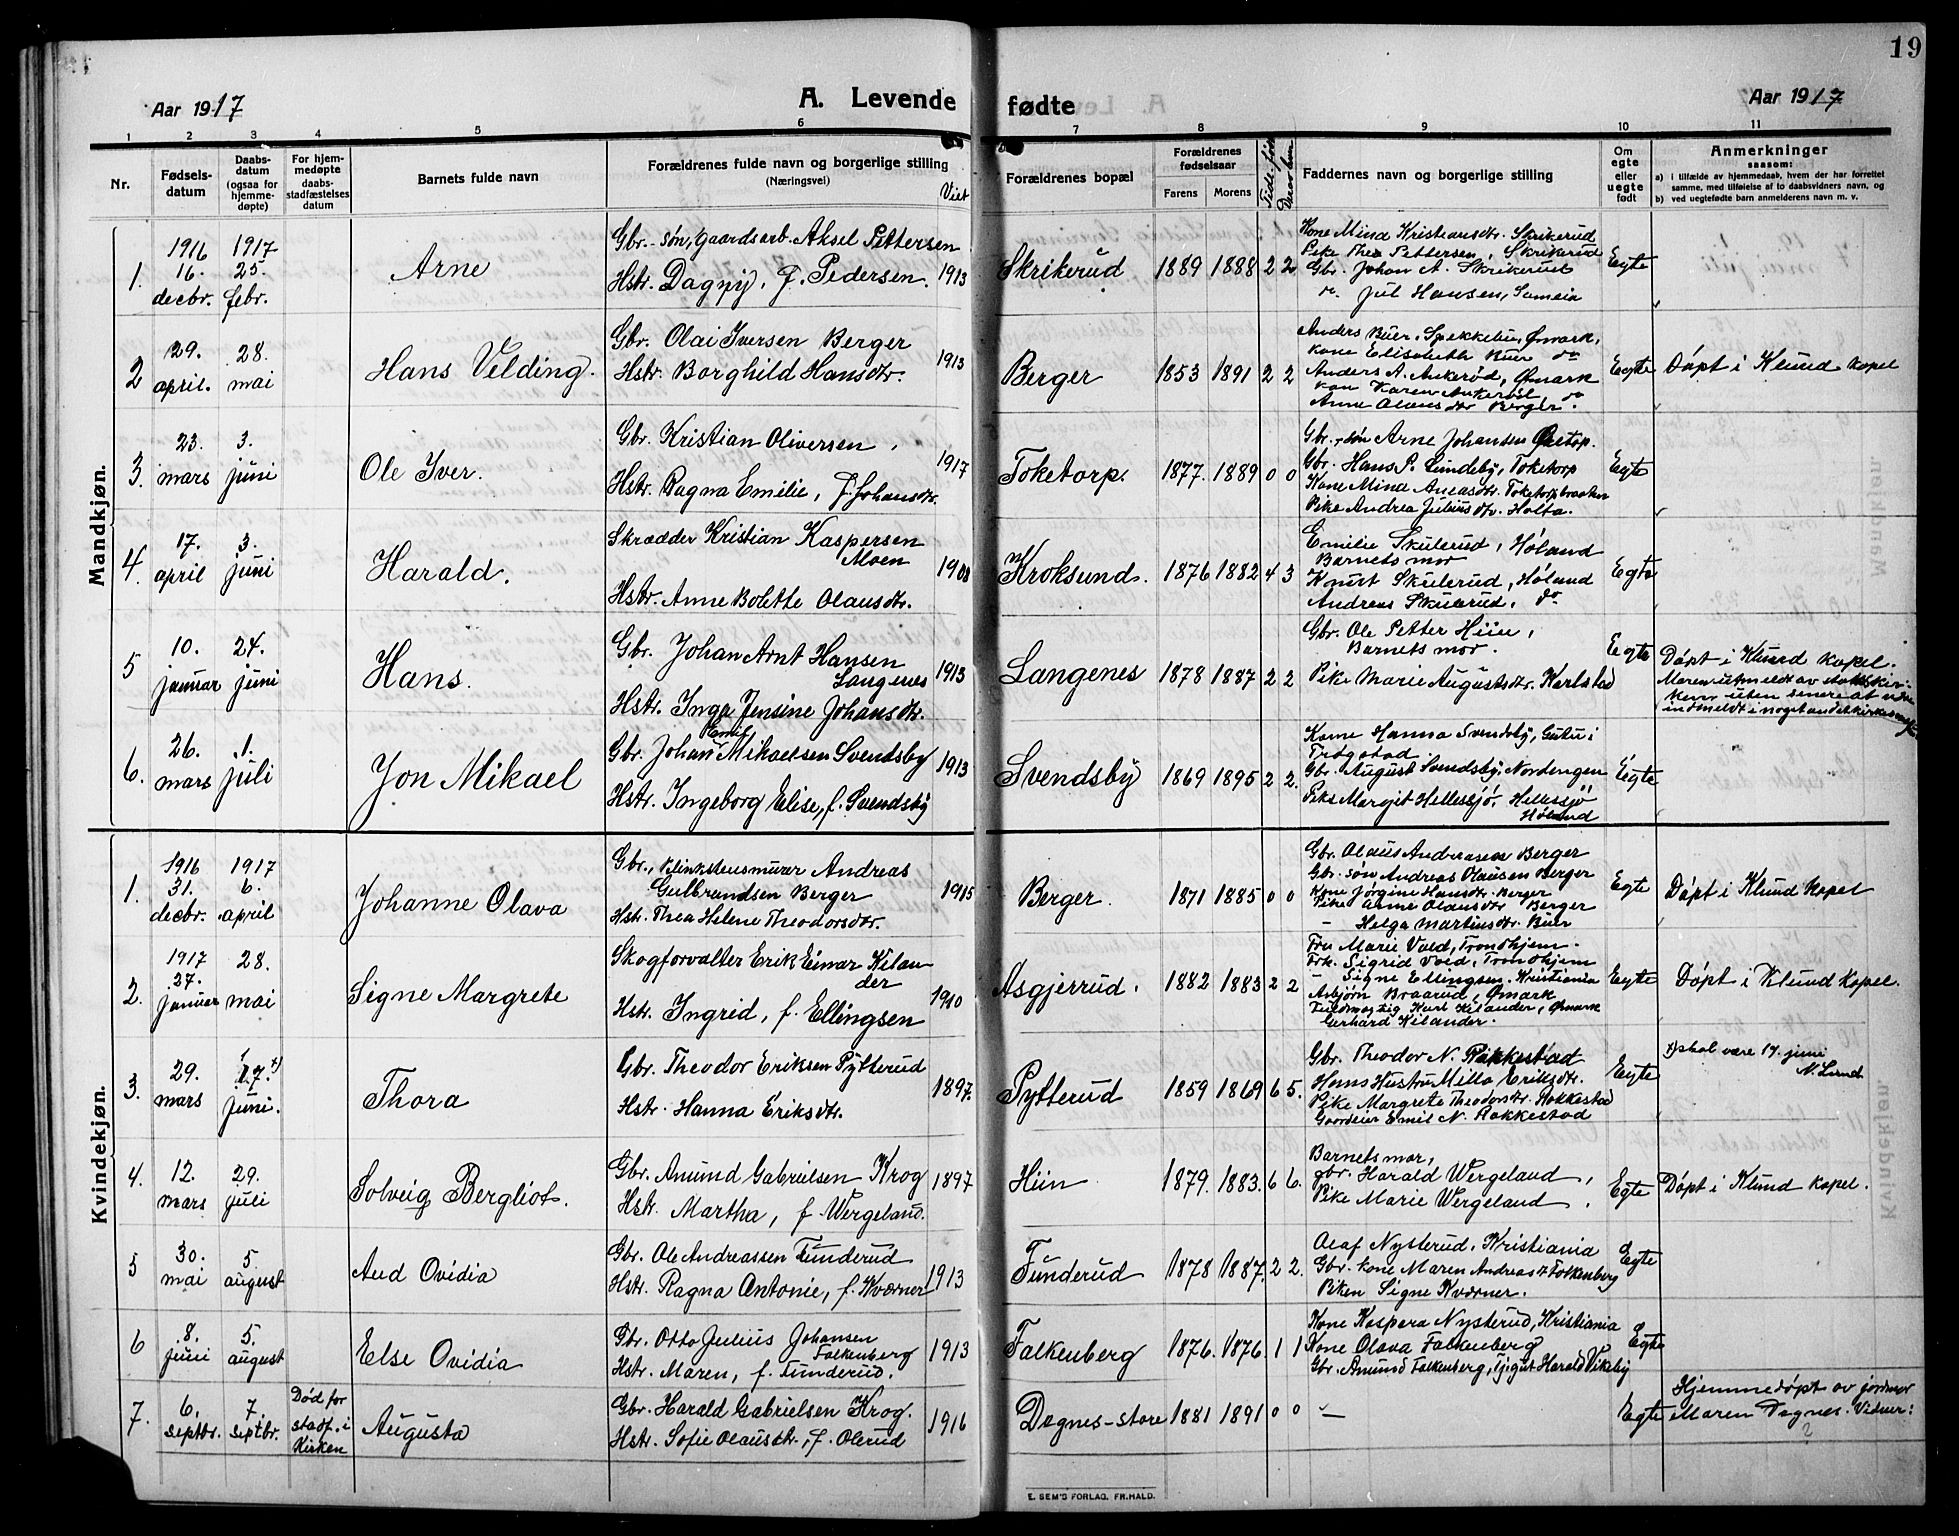 19
Aar 1917
A. Levende fødte
Aar 1917
1 2 3 4 5 6 7 8 9 10 11
Nr.
Fødsels-
datum
Daabs-
datum
(ogsaa for
hjemme-
døpte)
For hjem-
medøpte
daabs-
stadfæstelses
datum
Barnets fulde navn
Forældrenes fulde navn og borgerlige stilling
(Næringsvei)
Viet
Forældrenes bopæl
Forældrenes
fødselsaar
Farens Morens
Faddernes navn og borgerlige stilling
Om
egte
eller
uegte
født
Anmerkninger
saasom:
a) i tilfælde av hjemmedaab, hvem der har forrettet
samme, med tilføielse af to daabsvidners navn, og
b) ved uegtefødte barn anmelderens navn m. v.
Mandkjøn.
1.
1916
16.
decbr.
1917
25.
febr.
Arne
Gbr.-søn, gaardsarb. Aksel Pettersen
Hstr. Dagny, f. Pedersen.
1913
Skrikerud
1889 1888 2 2
Kone Mina Kristiansdtr. Skrikerud
Pike Thea Pettersen, Skrikerud
Gbr. Johan A. Skrikerud
do. Jul Hansen, Sameia
Egte
2
29.
april.
28.
mai
Hans Velding.
Gbr. Olai Iversen Berger
Hstr. Borghild Hansdtr.
1913
Berger
1853 1891 2 2
Anders Buer, Spekkebu, Ømark,
Kone Elisabeth Buer do
Anders A. Ankerød, Ømark
Kon Karen Ankerød do
Anne Olausdtr Berger.
Egte
Døpt i Klund kapel
3.
23.
mars
3.
juni
Ole Iver.
Gbr. Kristian Oliversen,
Hstr. Ragna Emilie, f. Johansdtr.
1917
Toketorp.
1877. 1889 0 0
Gbr.-søn Arne Johansen
Gbr. Hans P. Lundeby, Toketorp
Kone Mina Aneasdtr. Toketorpbraaten
Pike Andrea Juliusdtr. Holta.
Egte
4.
17.
april
3.
juni
Harald.
Skrædder Kristian Kaspersen
Moen
Hstr. Anne Bolette Olausdtr.
1908
Kroksund.
1876 1882 4 3
Emilie Skulerud, Høland
Barnets mor
Knut Skulerud, Høland
Andreas Skulerud, do
Egte
5
10.
januar
24.
juni
Hans.
Gbr. Johan Arnt Hansen
Langenes
Hstr. Inga Jensine Johansdtr.
1913
Langenes
1878 1887 2 2
Gbr. Ole Petter Hiin,
Barnets mor.
Pike Marie Augustsdtr. Karlstad
Egte
Døpt i Klund kapel.
Moren utmeldt av statskir-
ken uten senere at være
indmeldt i noget andet kirkesamf.
6.
26.
mars
1.
juli
Jon Mikael
Emil
Gbr. Johan Mikaelsen Svendsby
Hstr. Ingeborg Elise, f. Svendsby
1913
Svendsby
1869 1895 2 2.
Kone Hanna Svendsby, Gutu i
Trøgstad
Gbr. August Svendsby, Nordengen
Pike Margit Hellesjø, Hellesjø
Høland
Egte
Kvindekjøn.
1.
1916
31.
decbr.
1917
6.
april
Johanne Olava
Gbr., klinkstensmurer Andreas
Gulbrandsen Berger
Hstr. Thea Helene Theodorsdtr.
1915
Berger.
1871 1885 0 0
Gbr. Olaus Andreasen Berger
Gbr. søn Andreas Olausen Berger
Kone Jørgine Hansdtr. Berger
Pike Anne Olausdtr Berger
– Helga Martinsdtr. Buer
Egte
Døpt i Klund kapel
2.
1917
27.
januar
28.
mai
Signe Margrete
Skogforvalter Erik Einar Kilan
der
Hstr. Ingrid, f. Ellingsen
1910
Asgjerrud.
1882 1883 2 2
Fru Marie Vold, Trondhjem.
Frk. Sigrid Vold, Trondhjem
– Signe Ellingsen, Kristiania
Asbjørn Braarud, Ømark
Fuldmægtig Karl Kilander, Ømark
Gerhard Kilander.
Egte
Døpt i Klund kapel.
3.
29.
mars
17. x)
juni.
Thora
Gbr. Theodor Eriksen Pytterud
Hstr. Hanna Eriksdtr.
1897.
Pytterud
1859 1869 6 5.
Gbr. Theodor N. Rakkestad
Hans Hustru Milla Eriksdtr.
Pike Margrete Theodorsdtr. Rakkestad
Gaardeier Emil N. Rakkestad
Egte
x) skal være 17. juni
N. Lund
4.
12.
mars
29.
juli
Solveig Bergliot.
Gbr. Amund Gabrielsen Krog
Hstr. Martha, f. Wergeland.
1897
Hiin
1879. 1883. 6 6.
Barnets mor,
Gbr. Harald Wergeland,
Pike Marie Wergeland.
Egte
Døpt i Klund kapel.
5
30.
mai
5.
august
Aud Ovidia
Gbr. Ole Andreassen Funderud
Hstr. Ragna Antonie, f. Kværner
1913
Funderud
1878 1887. 2 2.
Olaf Nysterud, Kristiania
Gbr. kone Maren Andreasdtr Falkenberg
Piken Signe Kværner.
Egte
6
8.
juni
5.
august
Else Ovidia
Gbr. Otto Julius Johansen
Falkenberg
Hstr. Maren, f. Funderud.
1913
Falkenberg
1876. 1876 1 1
Kone Kaspera Nysterud, Kristiania
Kone Olava Falkenberg
Gbr. Amund Falkenberg, tj.gut Harald Vikeby
Egte
7.
6.
septbr.
7.
septbr.
Død før
stadf. i
Kirken
Augusta
Gbr. Harald Gabrielsen Krog.
Hstr. Sofie Olausdtr., f. Olerud
1916
Degnes-store
1881 1891 0 0
–
Egte
Hjemmedøpt av jordmor
Maren Degnes. Vidner:
?
E. SEM'S FORLAG, FR.HALD.